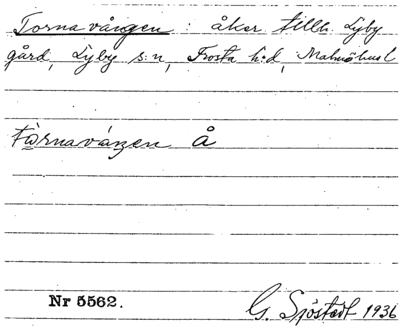 Tornavången : åker tillh. Lyby
gård, Lyby s:n, Frosta h:d, Malmöhus l
Tòrnavángen Å
Nr 5562.
G. Sjöstedt 1936